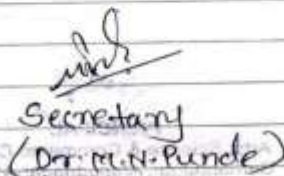 Secretary
(Dr. M.N. Punde)